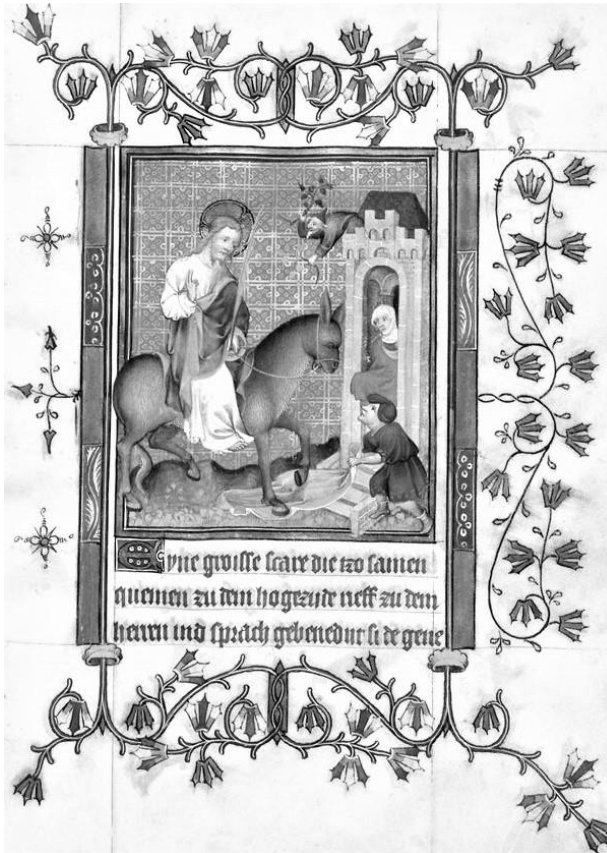 Eyne groisse scare die tzo samen
quemen zu dem hogezyde rieff zu dem
herren ind sprach gebenedyt si de gene